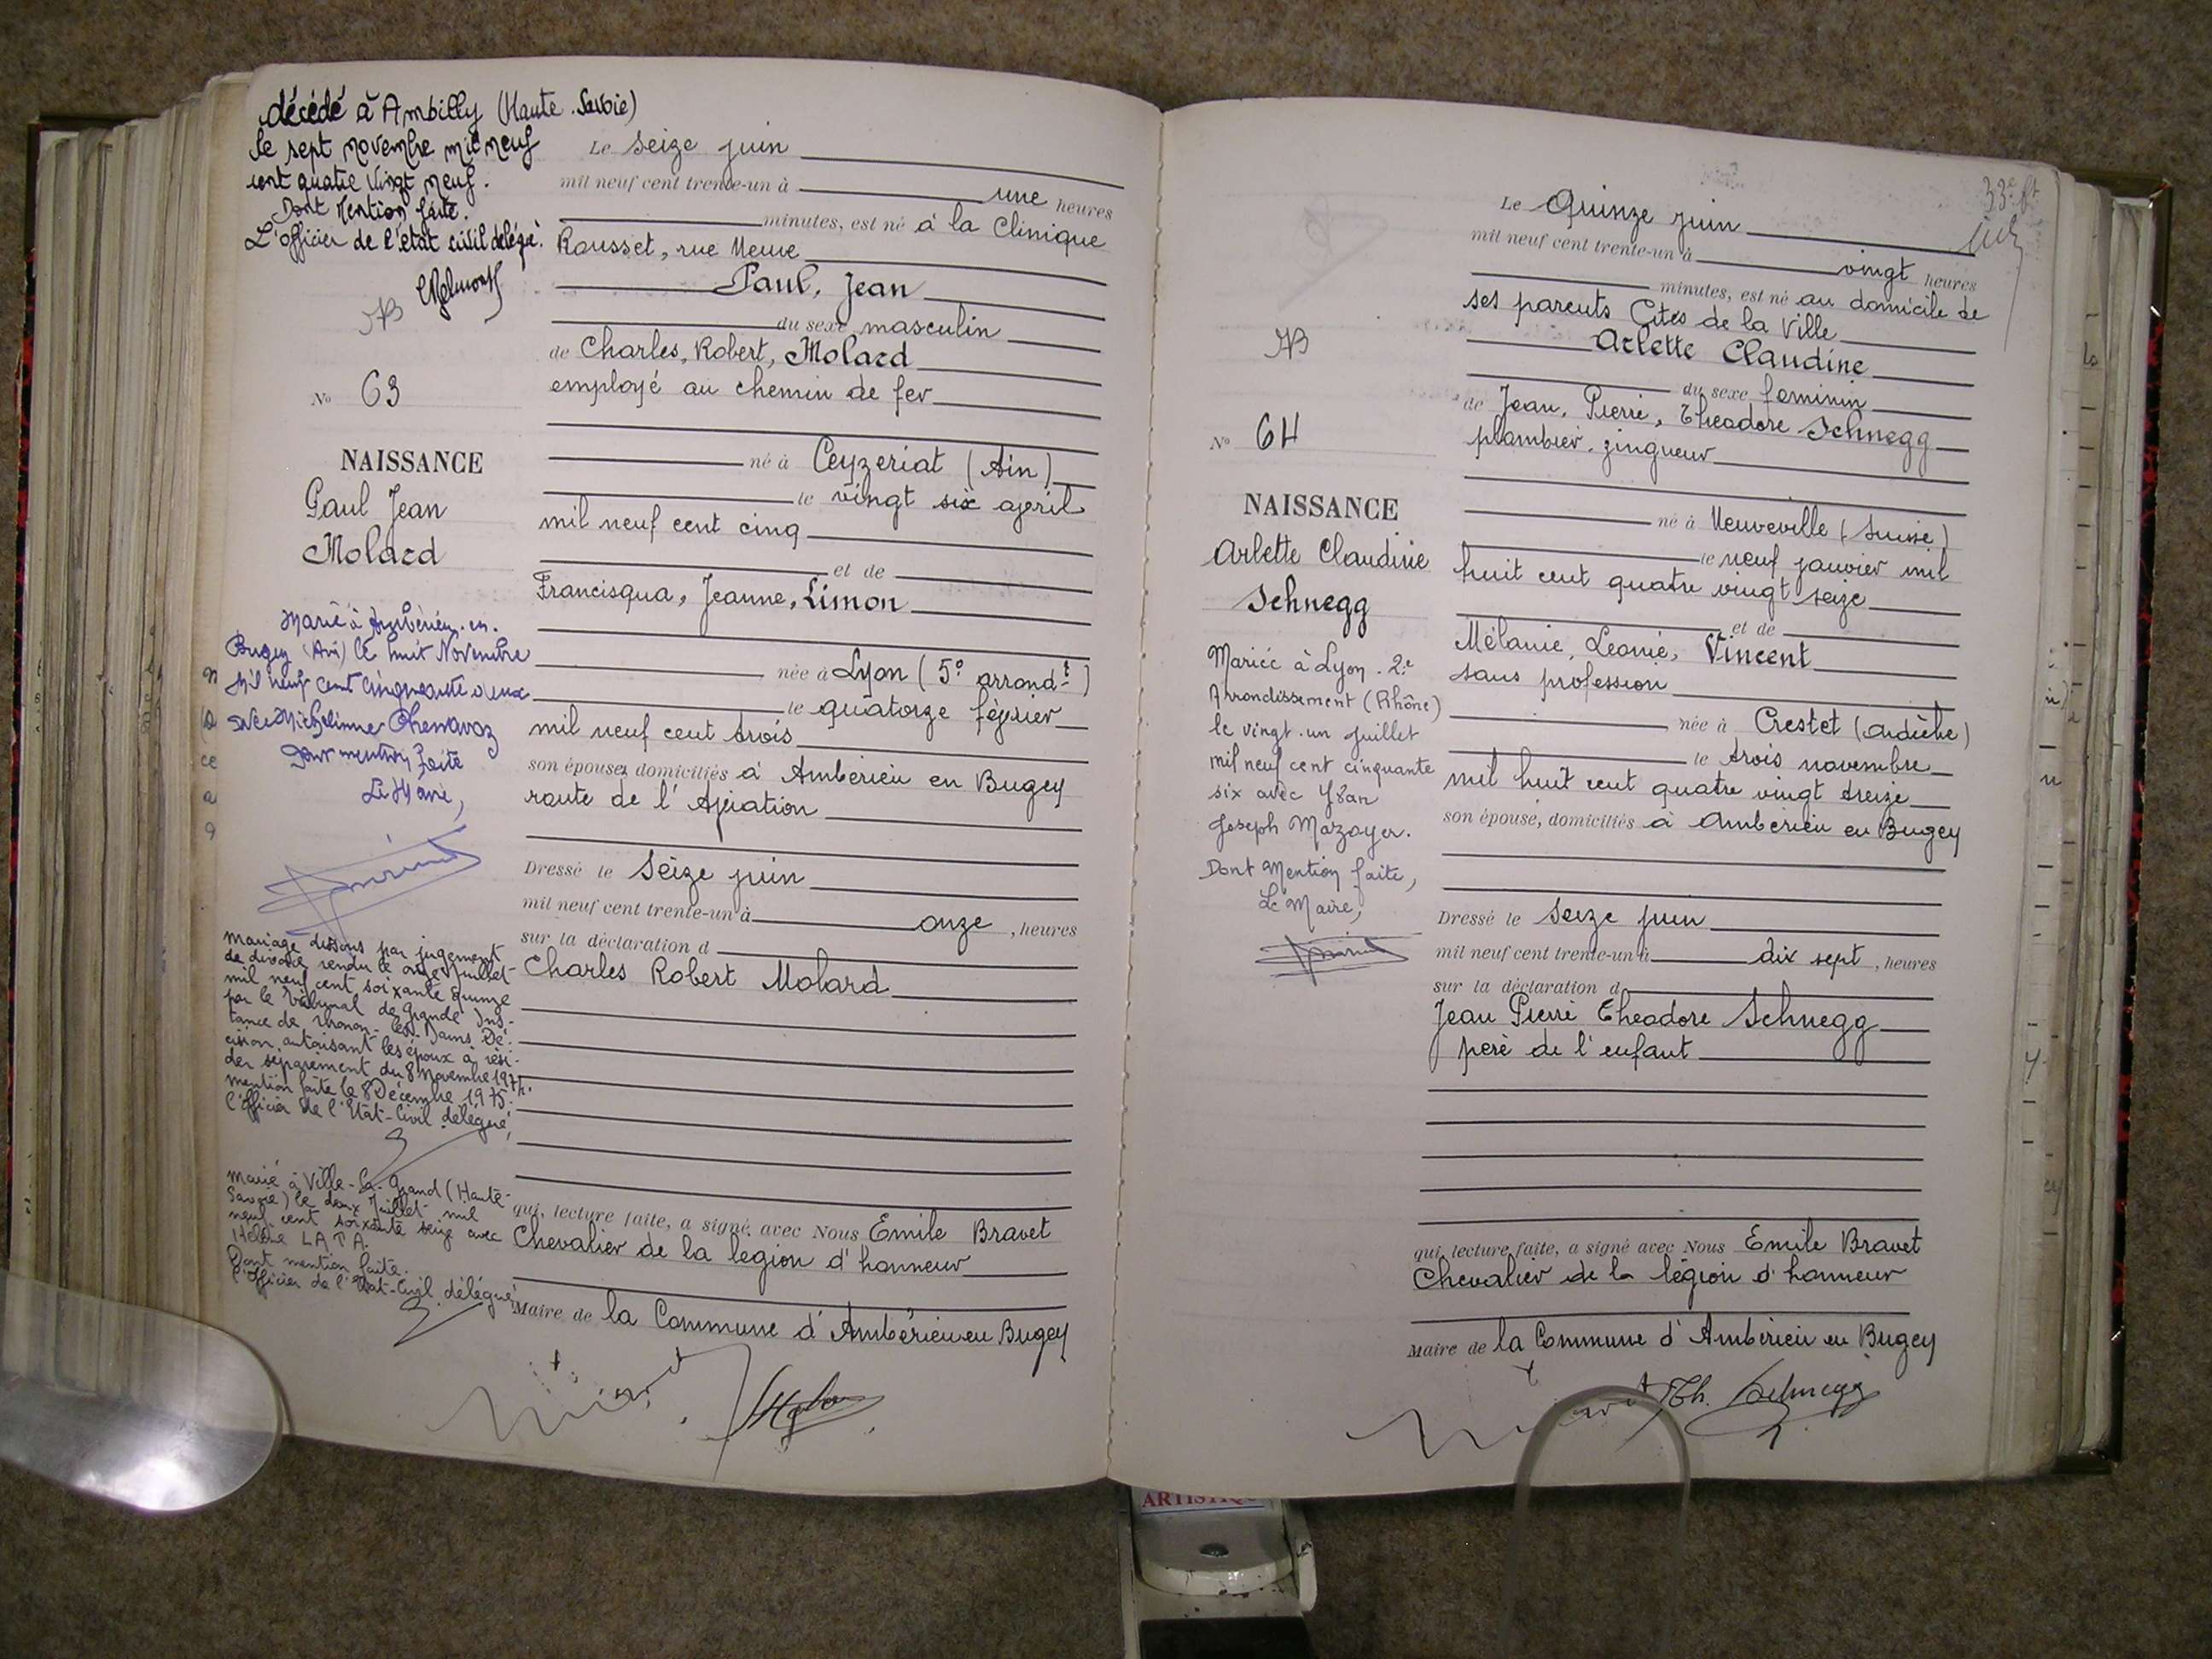 décédé à Ambilly (Haute-Savoie)
le sept novembre mil neuf
cent quatre vingt neuf.
Dont Mention faite.
L'officier de l'état civil délégué.
N° 63
NAISSANCE
Paul Jean
Molard
Marié à Ambérieu-en-
Bugey (Ain) le huit Novembre
mil neuf cent cinquante deux
avec Micheline Chenavaz
Dont mention faite
Le Maire,
Mariage dissous par jugement
de divorce rendu le onze Juillet
mil neuf cent soixante quinze
par le Tribunal de Grande Ins-
tance de Thonon-les-Bains. Dé-
cision autorisant les époux à rési-
der séparément du 8 Novembre 1974.
mention faite le 8 Décembre 1975.
l'Officier de l'Etat-Civil délégué,
Marié à Ville-La-Grand (Haute-
Savoie) le deux Juillet mil
neuf cent soixante seize avec
Hélène LATA.
Dont mention faite.
l'Officier de l'Etat-Civil délégué,
Le Seize juin
mil neuf cent trente-un à une heures
minutes, est né à la Clinique
Rousset, rue Neuve
Paul, Jean
du sexe masculin
de Charles, Robert, Molard
employé au chemin de fer
né à Ceyzeriat (Ain)
le vingt six avril
mil neuf cent cinq
et de
Francisqua, Jeanne, Limon
née à Lyon (5e arrondt)
le quatorze février
mil neuf cent trois
son épouse, domiciliés à Ambérieu en Bugey
route de l'Aviation
Dressé le Seize juin
mil neuf cent trente-un à onze, heures
sur la déclaration d
Charles Robert Molard
qui, lecture faite, a signé avec Nous Emile Bravet
Chevalier de la legion d'honneur
Maire de la Commune d'Ambérieu en Bugey
33e ft
N° 64
NAISSANCE
Arlette Claudine
Schnegg
Mariée à Lyon - 2e
Arrondissement (Rhône)
le vingt-un juillet
mil neuf cent cinquante
six avec Jean
Joseph Mazoyer.
Dont Mention faite,
Le Maire,
Le Quinze juin
mil neuf cent trente-un à vingt heures
minutes, est né au domicile de
ses parents Cités de la Ville
Arlette Claudine
du sexe feminin
de Jean, Pierre, Theodore Schnegg
plombier-zingueur
né à Neuveville (Suisse)
le neuf janvier mil
huit cent quatre vingt seize
et de
Mélanie, Leonie, Vincent
sans profession
née à Crestet (Ardèche)
le trois novembre
mil huit cent quatre vingt treize
son épouse, domiciliés à Amberieu en Bugey
Dressé le Seize juin
mil neuf cent trente-un à dix sept, heures
sur la déclaration d
Jean Pierre Theodore Schnegg
père de l'enfant
qui, lecture faite, a signé avec Nous Emile Bravet
Chevalier de la légion d'honneur
Maire de la Commune d'Ambérieu en Bugey
Th. Schnegg